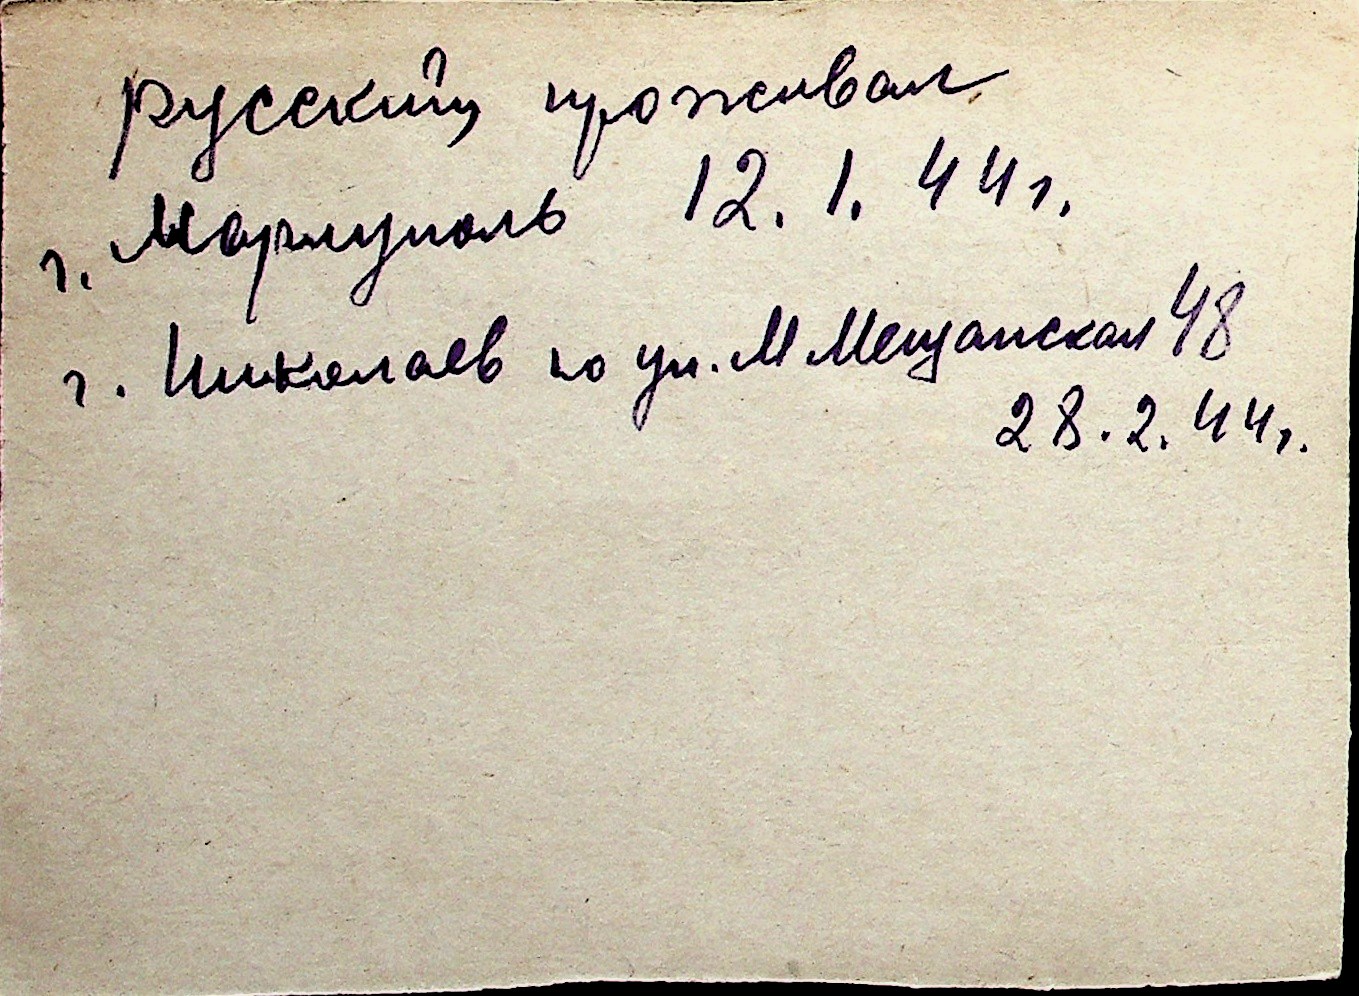 русский, проживал
г. Мариуполь 12.1.44г.
г. Николаев по ул. М Мещанская 48
28.2.44г.